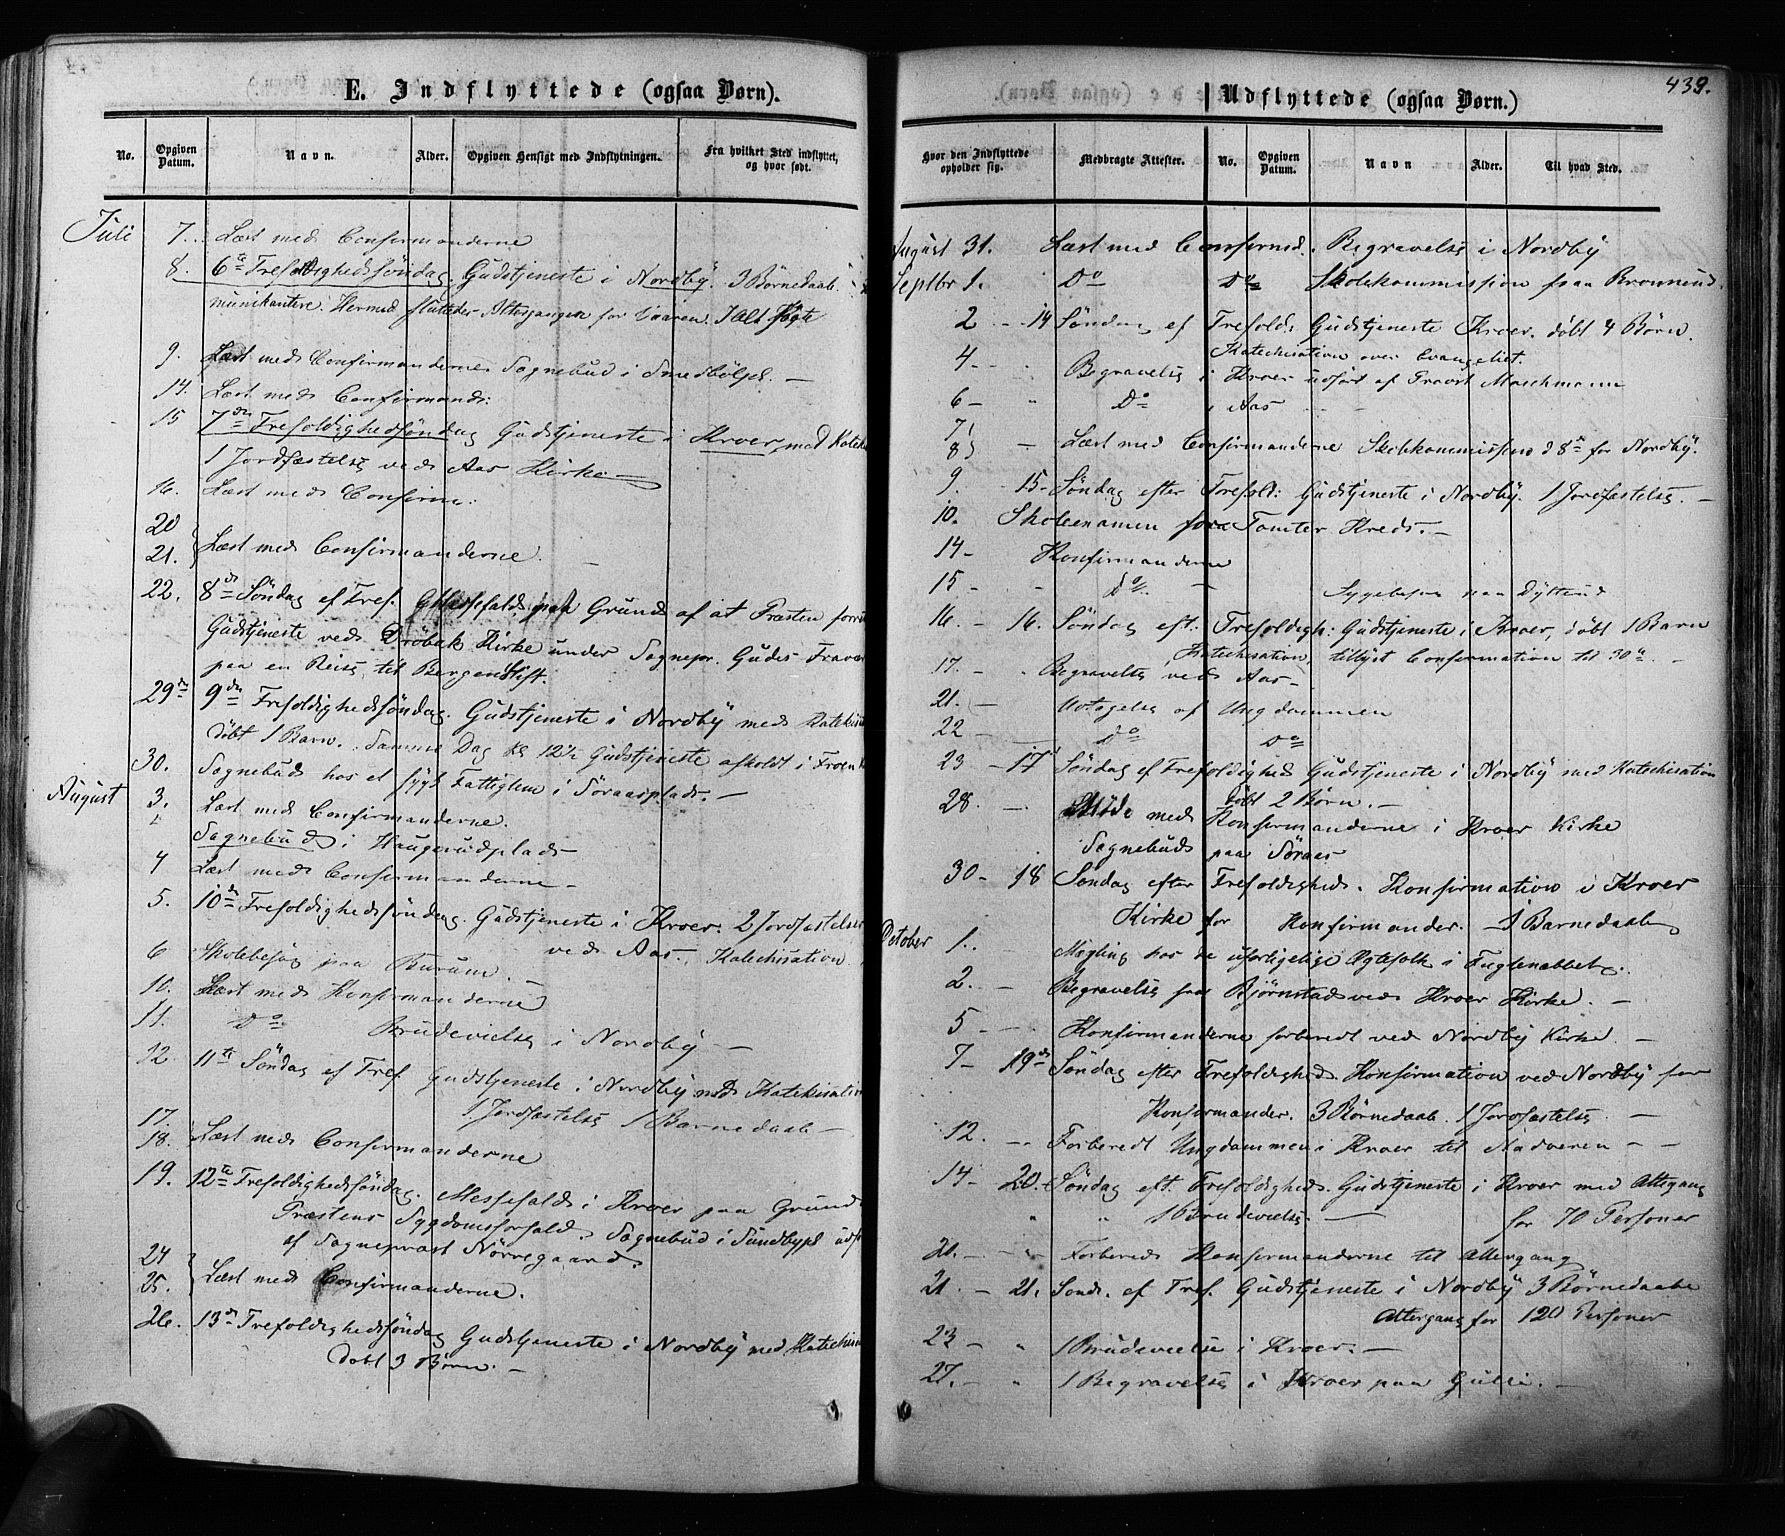 E. Indflyttede (ogsaa Børn).
No. Opgiven Datum. Navn. Alder. Opgiven Hensigt med Indflytningen. Fra hvilket Sted indflyttet, og hvor født.
Juli 7. Læst med Confirmanderne
8. 6te Trefoldighedssøndag. Gudstjeneste i Nordby. 3 Børnedaab.
munikantere. Hermed slutteder Altergangen for Vaaren. Ialt
9. Læst med Confirmanderne Sognebud i Smedbølpl. —
14. Læst med Confirmand:
15 7de Trefoldighedssøndag Gudstjeneste i Kroer, med
1 Jordfæstelse ved Aas Kirke —
16. Læst med Confirm:
20
21. Læst med Confirmanderne. —
22. 8de Søndag ef Tref. Messefald paa Grund af at Præsten
Gudstjeneste ved Drøbak Kirke under Sognepr. Gudes
paa en Reise til Bergens Stift.
29de 9de Trefoldighedssøndag. Gudstjeneste i Nordby med
døbt 1 Barn. Samme Dag Kl 12½ Gudstjeneste afholdt i
30. Sognebud hos et sygt Fattiglem i Søraasplads. —
August 3. Læst med Confirmanderne.
Sognebud i Haugerudplads
4 Læst med Confirmanderne —
5. 10de Trefoldighedssøndag. Gudstjeneste i Kroer. 2 Jordfæstelser
ved Aas., Katechisation
6 Skolebesøg paa
10. Læst med Konfirmanderne
11. Do Brudevielse i Nordby —
12. 11te Søndag ef Tref Gudstjeneste i Nordby med
1 Jordfæstelse 1 Barnedaab —
17.
18. Læst med Confirmanderne
19. 12te Trefoldighedssøndag. Messefald i Kroer paa Grund
Præstens Sygdomsforfald. Sognebud i Sundbypl
af Sogneprast Nørregaard.
24
25. Læst med Confirmanderne.
26. 13de Trefoldighedssøndag Gudstjeneste i Nordby med
Døbt 3 Børn. —
439.
Udflyttede (ogsaa Børn.)
Hvor den Indflyttede opholder sig. Medbragte Attester. No. Opgiven Datum. Navn Alder. Til hvad Sted.
August 31. Læst med Confirmd. Begravelse i Nordby
Septbr 1. Do Do Skolekommission
2 — 14 Søndag ef Trefold: Gudstjeneste Kroer. døbt 4 Børn.
Katechisation over Evangeliet.
4 — Begravelse i Kroer udført af Provst Maschmann
6 — " Do i Aas
7
8 — Læst med Confirmanderne Skolekommission d 8de for Nordby.
9. 15 — Søndag efter Trefold: Gudstjeneste i Nordby. 1 Jordfæstelse. —
10. Skoleexamen for Tomter Kreds. —
14 — Konfirmanderne
15 — " Do. — Sygebesøg paa
16. — 16. Søndag eft: Trefoldigh: Gudstjeneste i Kroer, døbt 1 Barn
Katechisation, tillyst Confirmation til 30te. —
17. " Begravelse ved Aas —
21. — Modtagelse af Ungdommen
22 — Do Do
23 — 17 Søndag ef Trefoldighed Gudstjeneste i Nordby med Katechisation
Døbt 2 Børn. —
28. — Møde med Konfirmanderne i Kroer Kirke
Sognebud paa Søraas
30 — 18 Søndag efter Trefoldighed. Konfirmation i Kroer
Kirke for Konfirmander. 1 Barnedaab
October 1. Mægling hos de uforligelige Ægtefolk i Fuglenæbbet.
2. — Begravelse fra Bjørnstad ved Kroer Kirke. —
5 — Konfirmanderne forberedt ved Nordby Kirke. —
7 — 19de Søndag efter Trefoldighed. Konfirmation ved Nordby for
Konfirmander. 3 Børnedaab. 1 Jordfæstelse. —
12. — Forberedt Ungdommen i Kroer til Nadveren — —
14 — 20. Søndag eft. Trefoldighed. Gudstjeneste i Kroer med Altergang
" " 1 Brudevielse. — for 70 Personer
20. — " Forbered Konfirmanderne til Altergang
21. — 21. Sønd. ef Tref. Gudstjeneste i Nordby 3 Børnedaabe
Altergang for 120 Personer
23 — " 1 Brudevielse i Kroer. —
27. — " 1 Begravelse i Kroer paa —